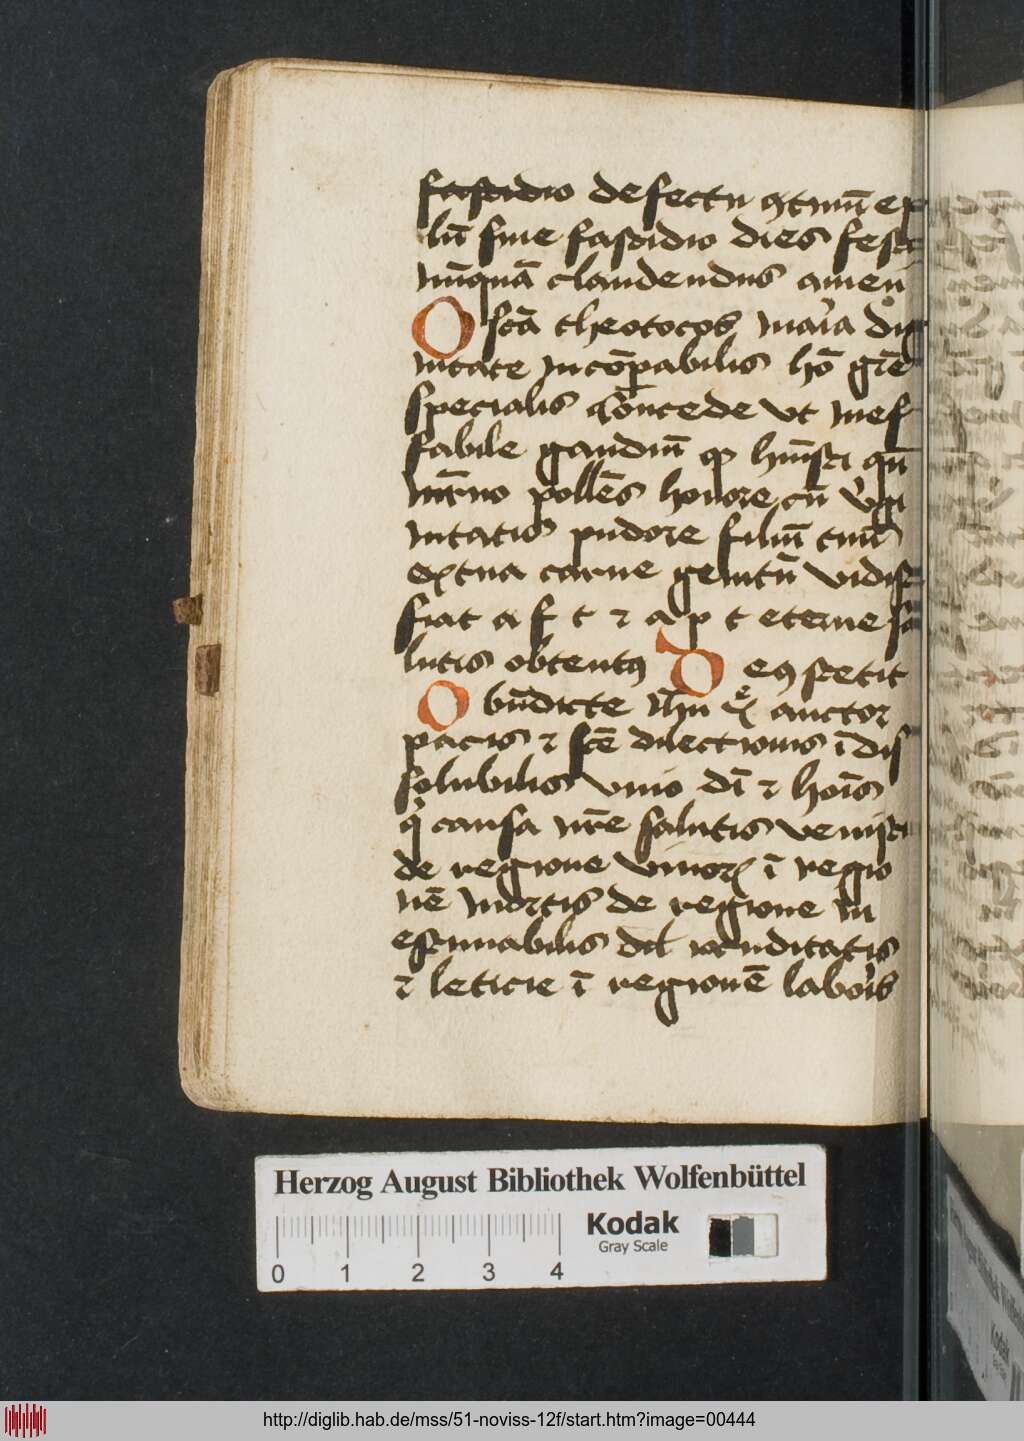 fastidio defectu ꝯtinuū ex
lū sine fastidio dies fest
nūquā claudendus amen
O scā theotocos maria dig
nitate incōpabilis hō grē
specialis Concede vt inef
fabile gaudiū qͥ huisti qn̄
mr̄no pollēs honore cū v̓gi
nitatis pudore filiū tuū
ex tua carne genitū vidisti
fiat a f t ⁊ a p t eterne sa
lutis obtentꝰ D eꝰ stetit
O bn̄dicte ihū xͤ auctor
pacis ⁊ scē dilectionis īdis
solubilis vnio dī ⁊ hoīs
qͥ causa nr̄e salutis venisti
de regione viuoꝝ ī regio
nē mortis de regione in
estimabilis iocunditatis
⁊ leticie ī regionē laboris
Herzog August Bibliothek Wolfenbüttel
Kodak
Gray Scale
0 1 2 3 4
http://diglib.hab.de/mss/51-noviss-12f/start.htm?image=00444